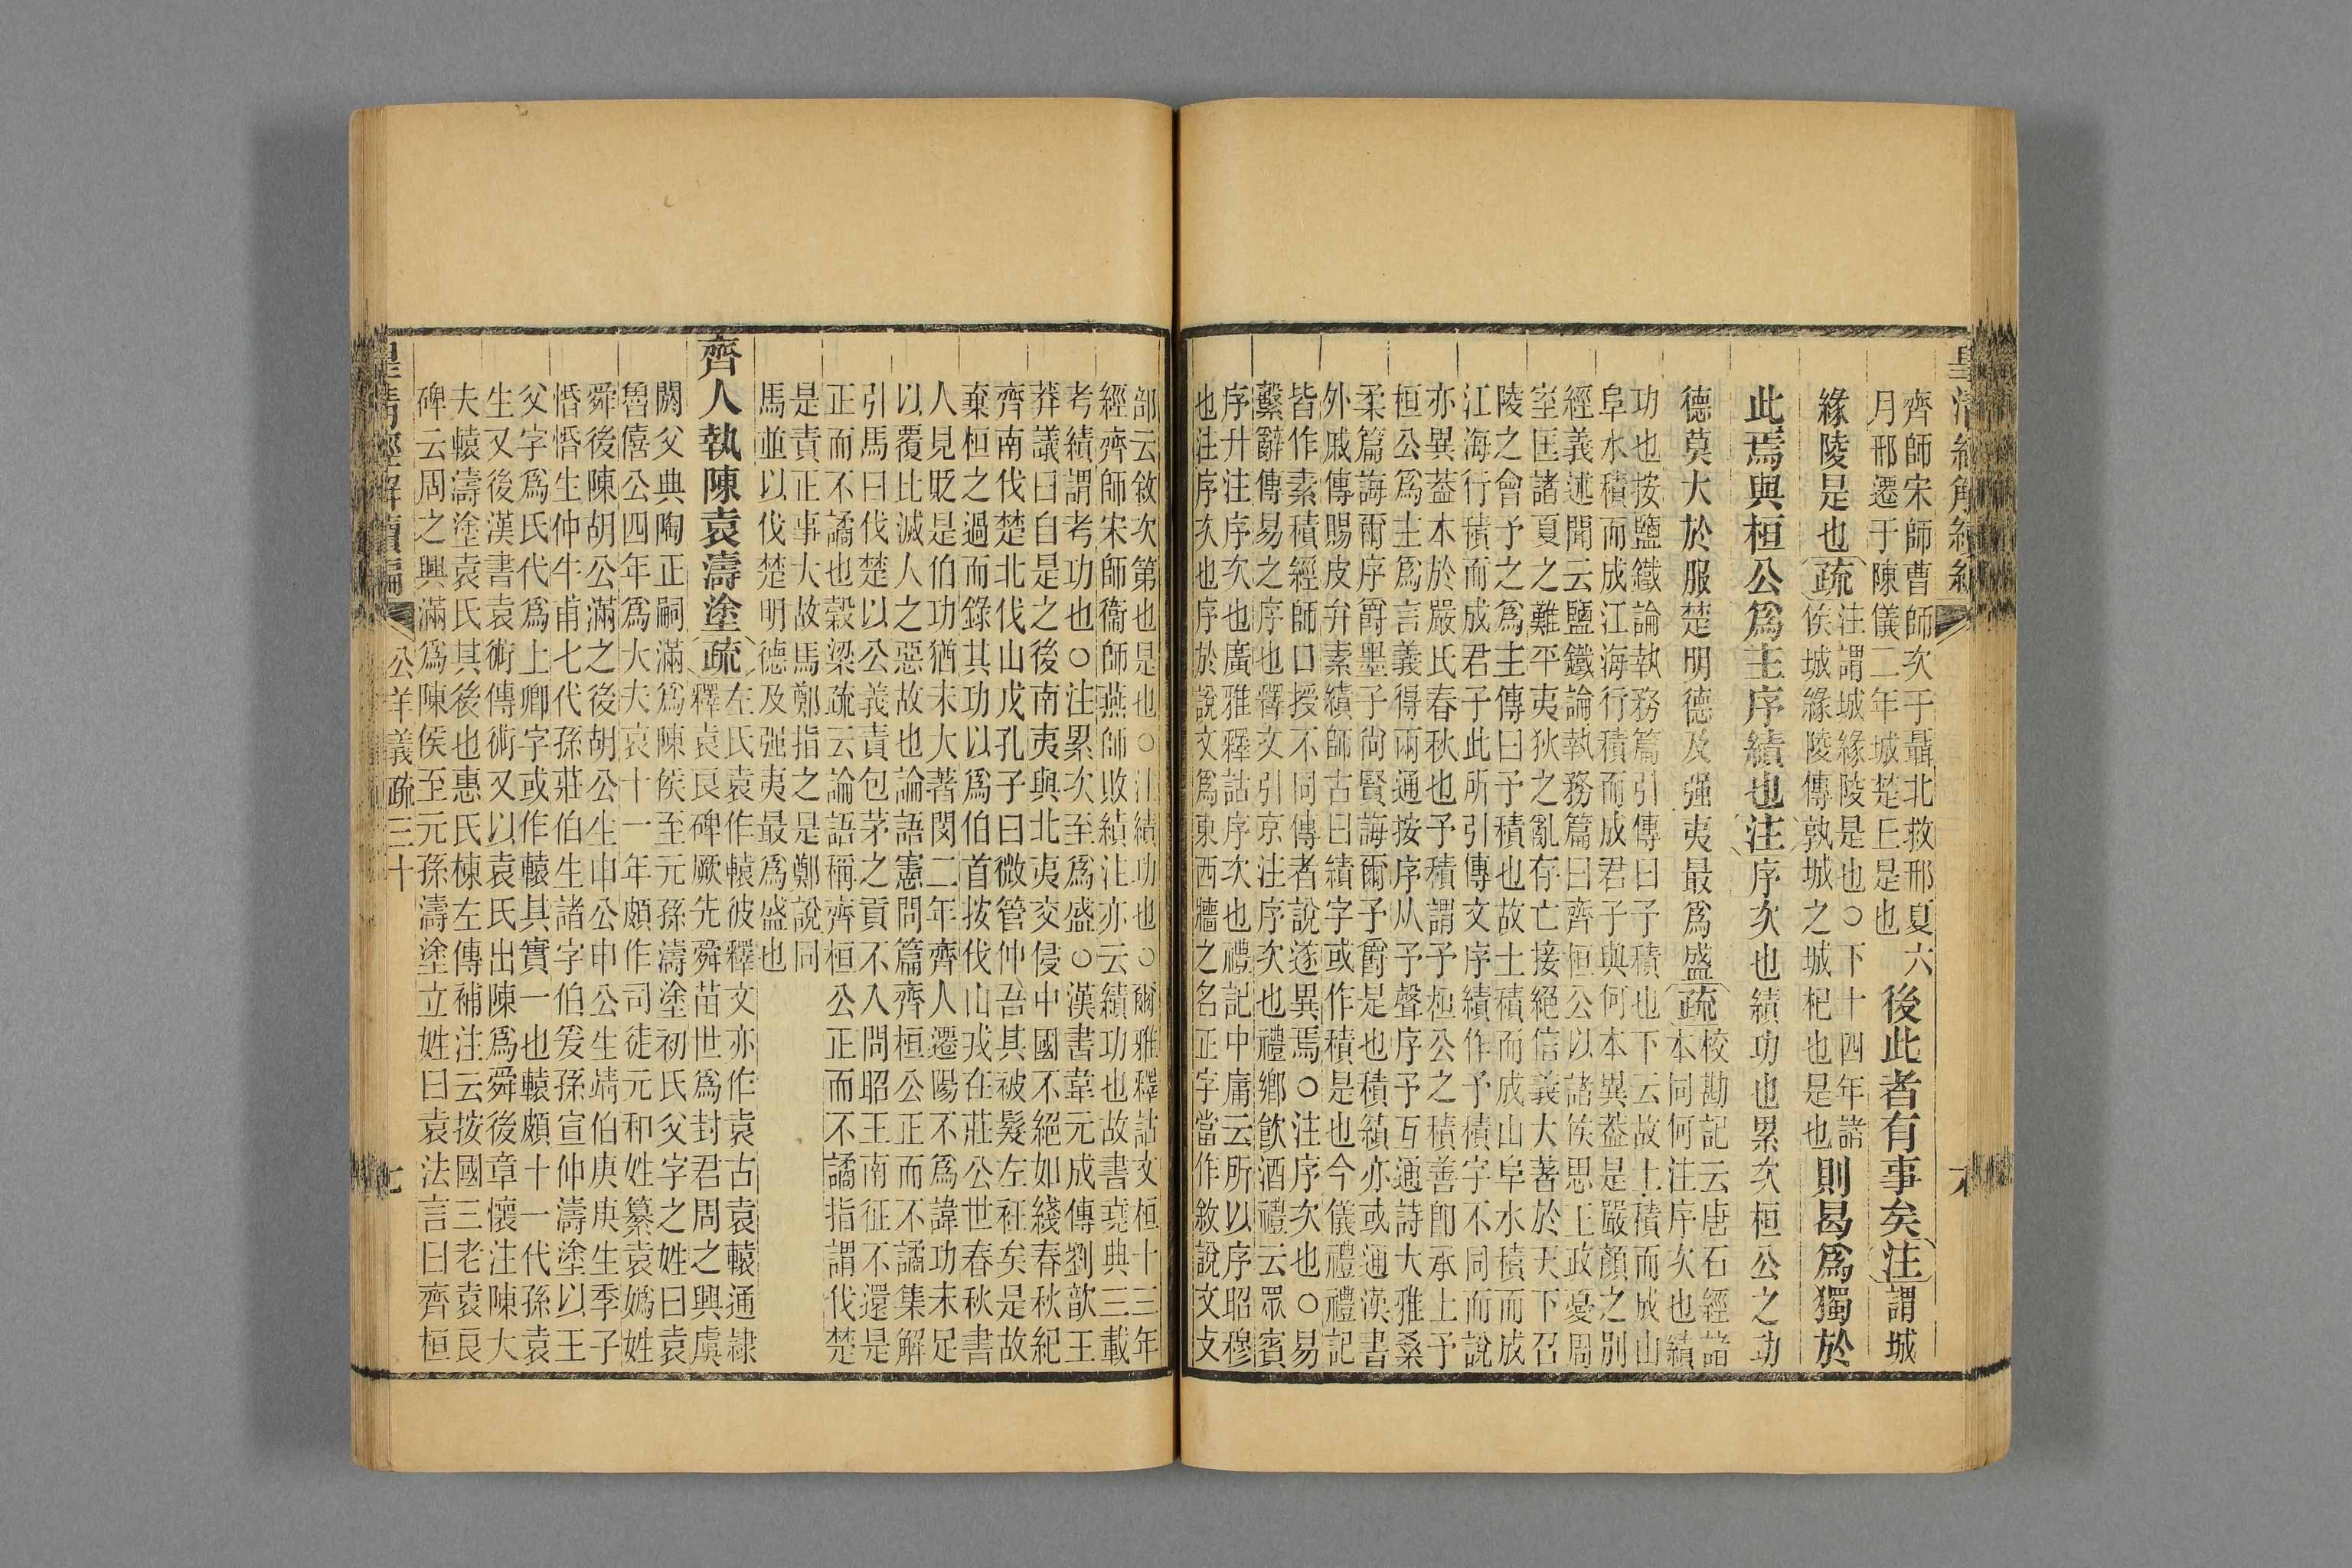 皇清經解續編
齊師宋師曹師次于聶北救邢夏六
月邢遷于陳儀二年城楚丘是也
後此者有事矣注謂城
緣陵是也疏
注謂城緣陵是也○下十四年諸
侯城緣陵傳孰城之城杞也是也
則曷爲獨於
此焉與桓公爲主序績也注序次也績功也累次桓公之功
德莫大於服楚明德及强夷最爲盛疏
校勘記云唐石經諸
本同何注序次也績
功也按鹽鐵論執務篇引傳曰予積也下云故土積而成山
阜水積而成江海行積而成君子與何本異蓋是嚴顏之別
經義述聞云鹽鐵論執務篇曰齊桓公以諸侯思王政憂周
室匡諸夏之難平夷狄之亂存亡接絕信義大著於天下召
陵之會予之爲主傳曰予積也故土積而成山阜水積而成
江海行積而成君子此所引傳文序績作予積字不同而說
亦異蓋本於嚴氏春秋也予積謂予桓公之積善卽承上予
桓公爲主爲言義得兩通按序从予聲序予互通詩大雅桑
柔篇誨爾序爵墨子尙賢誨爾予爵是也積績亦或通漢書
外戚傳賜皮弁素績師古曰績字或作積是也今儀禮禮記
皆作素積經師口授不同傳者說遂異焉○注序次也○易
繫辭傳易之序也釋文引京注序次也禮鄉飮酒禮云眾賓
序升注序次也廣雅釋詁序次也禮記中庸云所以序昭穆
也注序次也序於說文爲東西牆之名正字當作敘說文攴
部云敘次第也是也○注績功也○爾雅釋詁文桓十三年
經齊師宋師衞師燕師敗績注亦云績功也故書堯典三載
考績謂考功也○注累次至爲盛○漢書韋元成傳劉歆王
莽議曰自是之後南夷與北夷交侵中國不絕如綫春秋紀
齊南伐楚北伐山戎孔子曰微管仲吾其被髮左衽矣是故
棄桓之過而錄其功以爲伯首按伐山戎在莊公世春秋書
人見貶是伯功猶未大著閔二年齊人遷陽不爲諱功未足
以覆比滅人之惡故也論語憲問篇齊桓公正而不譎集解
引馬曰伐楚以公義責包茅之貢不入問昭王南征不還是
正而不譎也穀梁疏云論語稱齊桓公正而不譎指謂伐楚
是責正事大故馬鄭指之是鄭說同
馬並以伐楚明德及强夷最爲盛也
齊人執陳袁濤塗疏
左氏袁作轅彼釋文亦作袁古袁轅通隷
釋袁良碑厥先舜苗世爲封君周之興虞
閼父典陶正嗣滿爲陳侯至元孫濤塗初氏父字之姓曰袁
魯僖公四年爲大夫哀十一年頗作司徒元和姓纂袁嬀姓
舜後陳胡公滿之後胡公生申公申公生靖伯庚庚生季子
惛惛生仲牛甫七代孫莊伯生諸字伯爰孫宣仲濤塗以王
父字爲氏代爲上卿字或作轅其實一也轅頗十一代孫袁
生又後漢書袁術傳術又以袁氏出陳爲舜後章懷注陳大
夫轅濤塗袁氏其後也惠氏棟左傳補注云按國三老袁良
碑云周之興滿爲陳侯至元孫濤塗立姓曰袁法言曰齊桓
皇清經解續編 公羊義疏三十 七